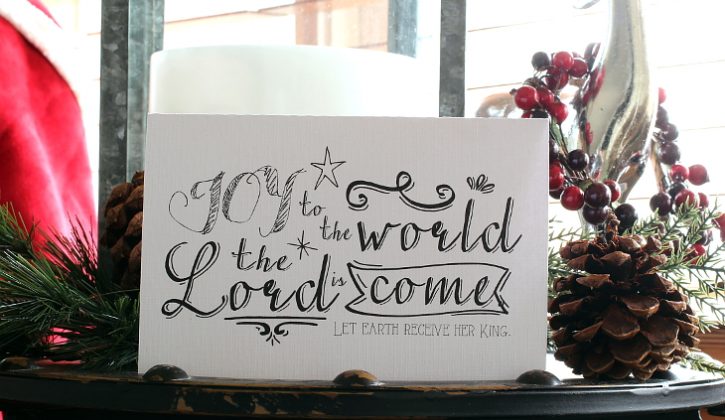 JOY to the world
the Lord is come
LET EARTH RECEIVE HER KING.